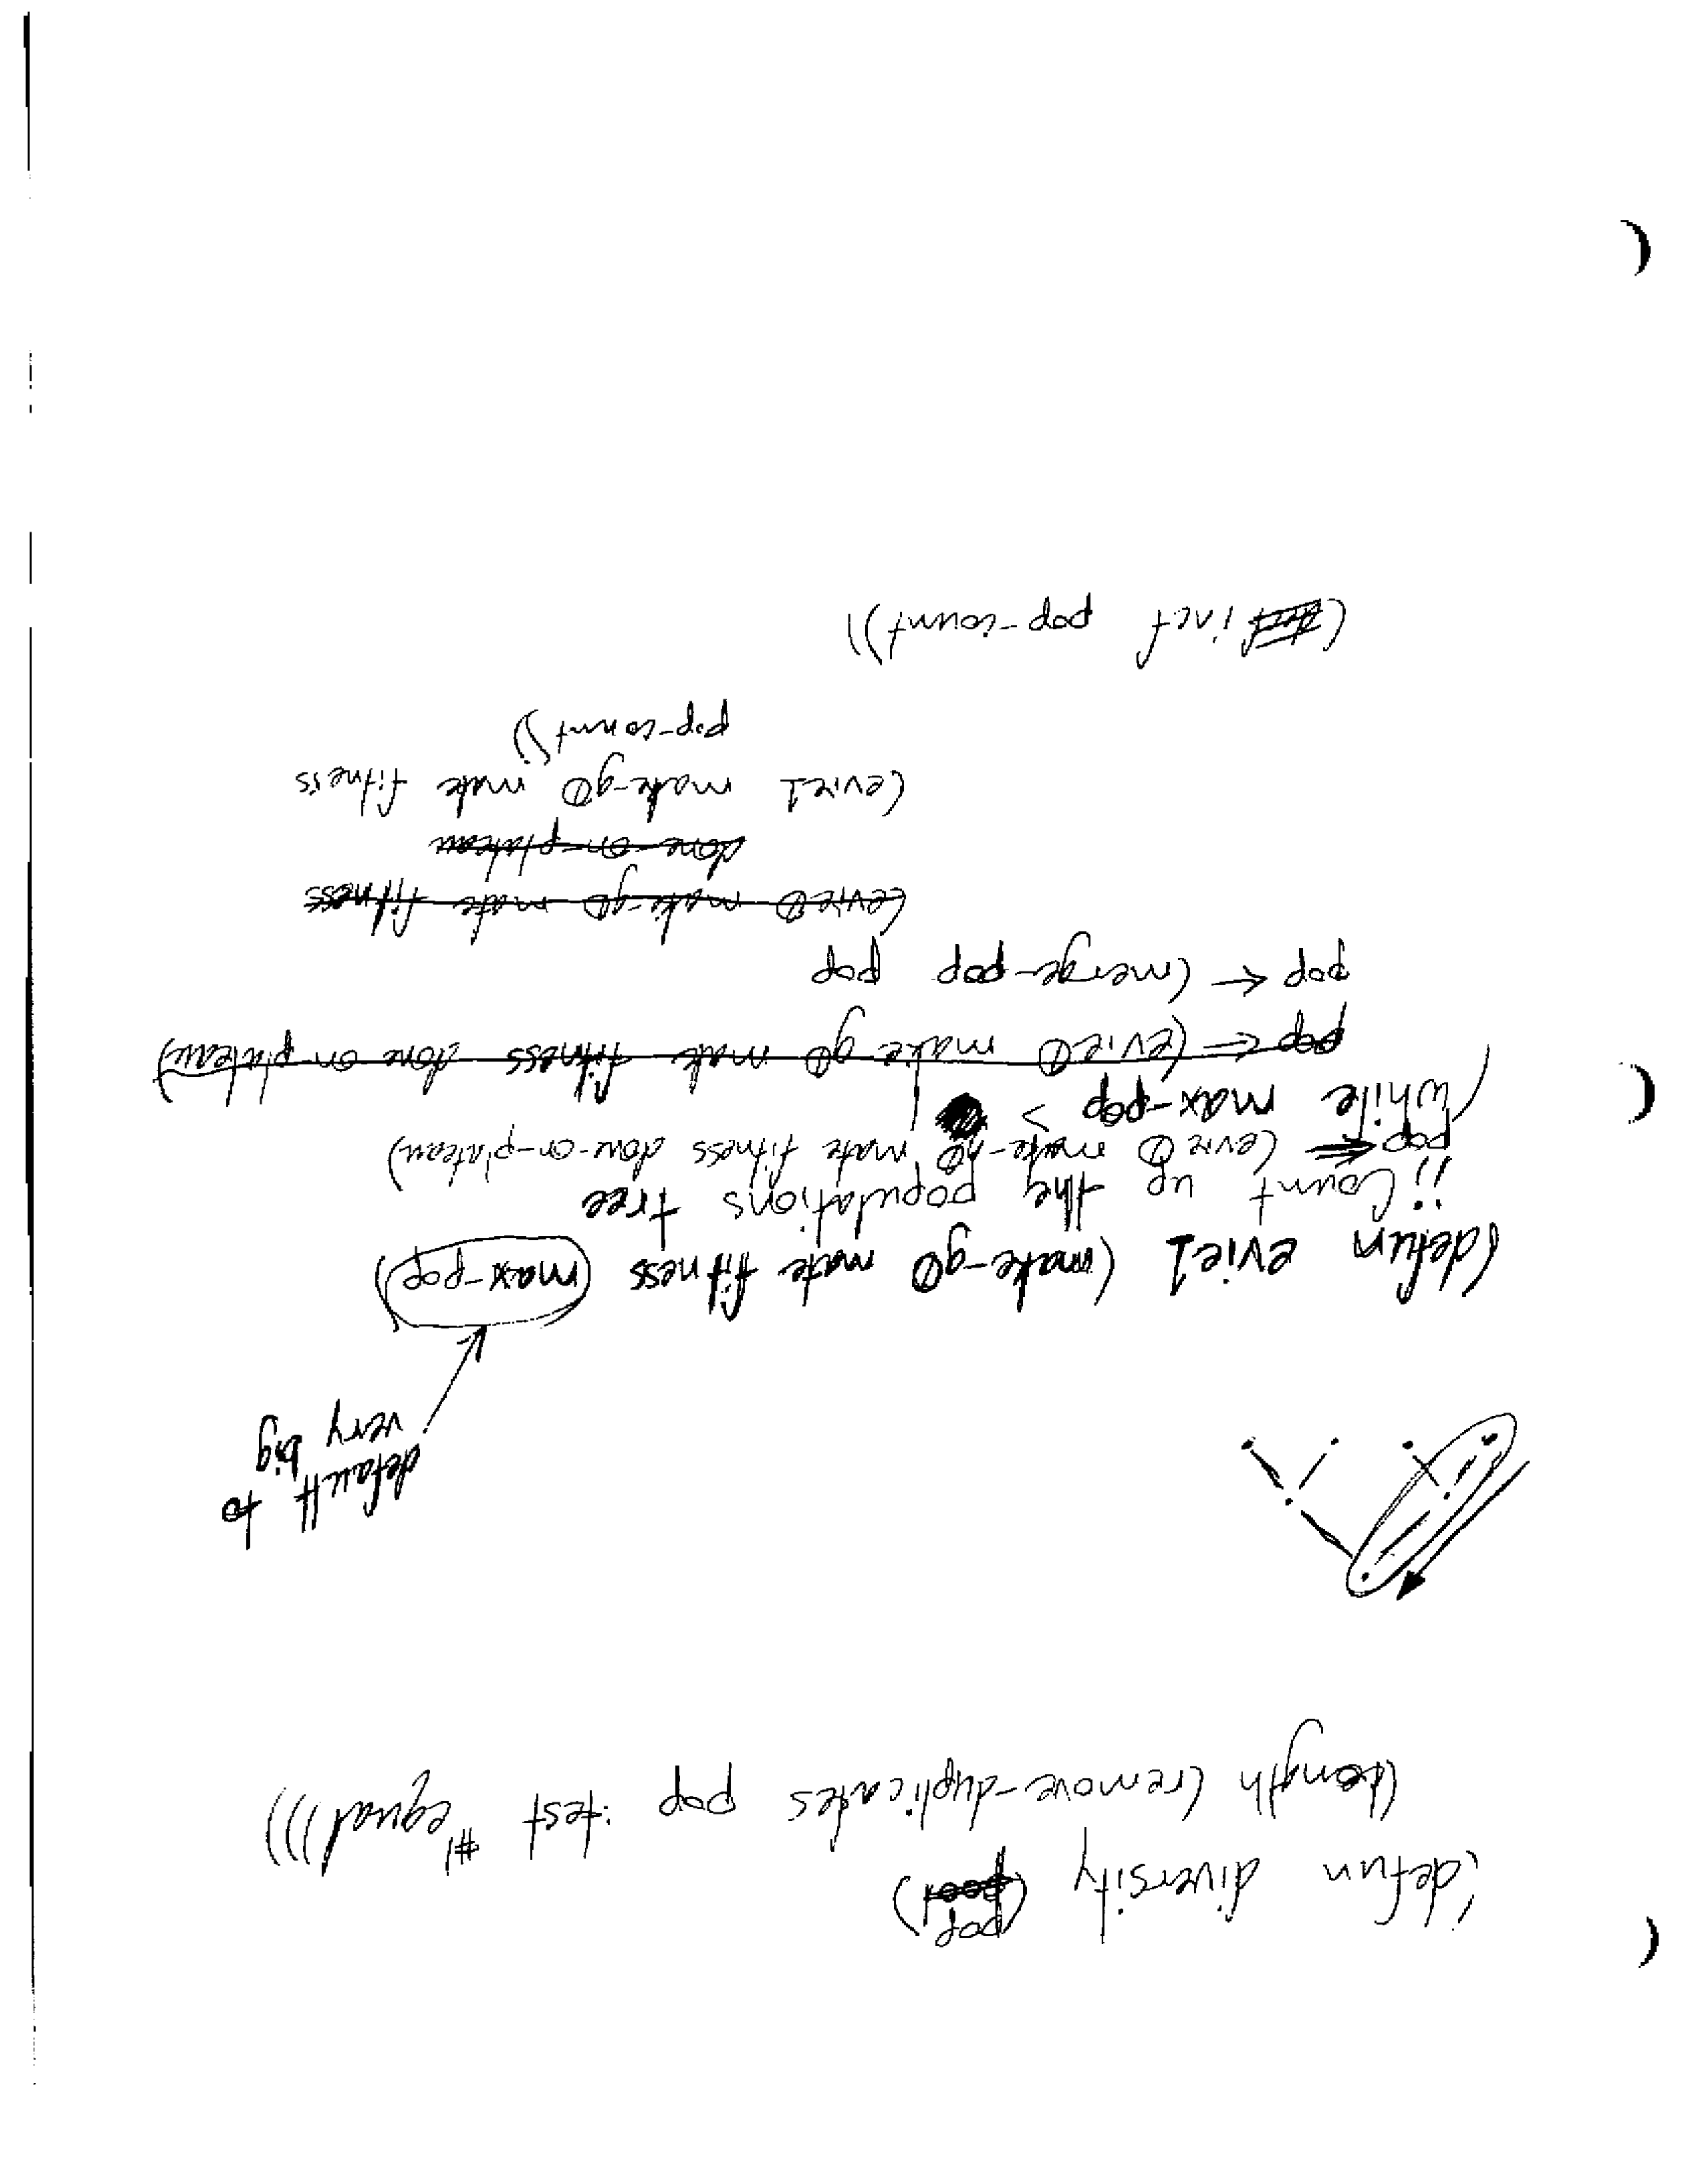 (defun diversity (pop)
(length (remove-duplicates pop :test #'equal)))
default to
very big
(defun evie1 (make-g0 mate fitness (max-pop)
;; Count up the populations tree
pop ← (evie0 make-g0 mate fitness done-on-plateau)
(while max-pop > 1
pop ← (evie0 make-g0 mate fitness done-on-plateau)
pop ← (merge-pop pop
(evie0 make-g0 mate fitness
done-on-plateau
(evie1 make-g0 mate fitness
pop-count))
(incf pop-count))